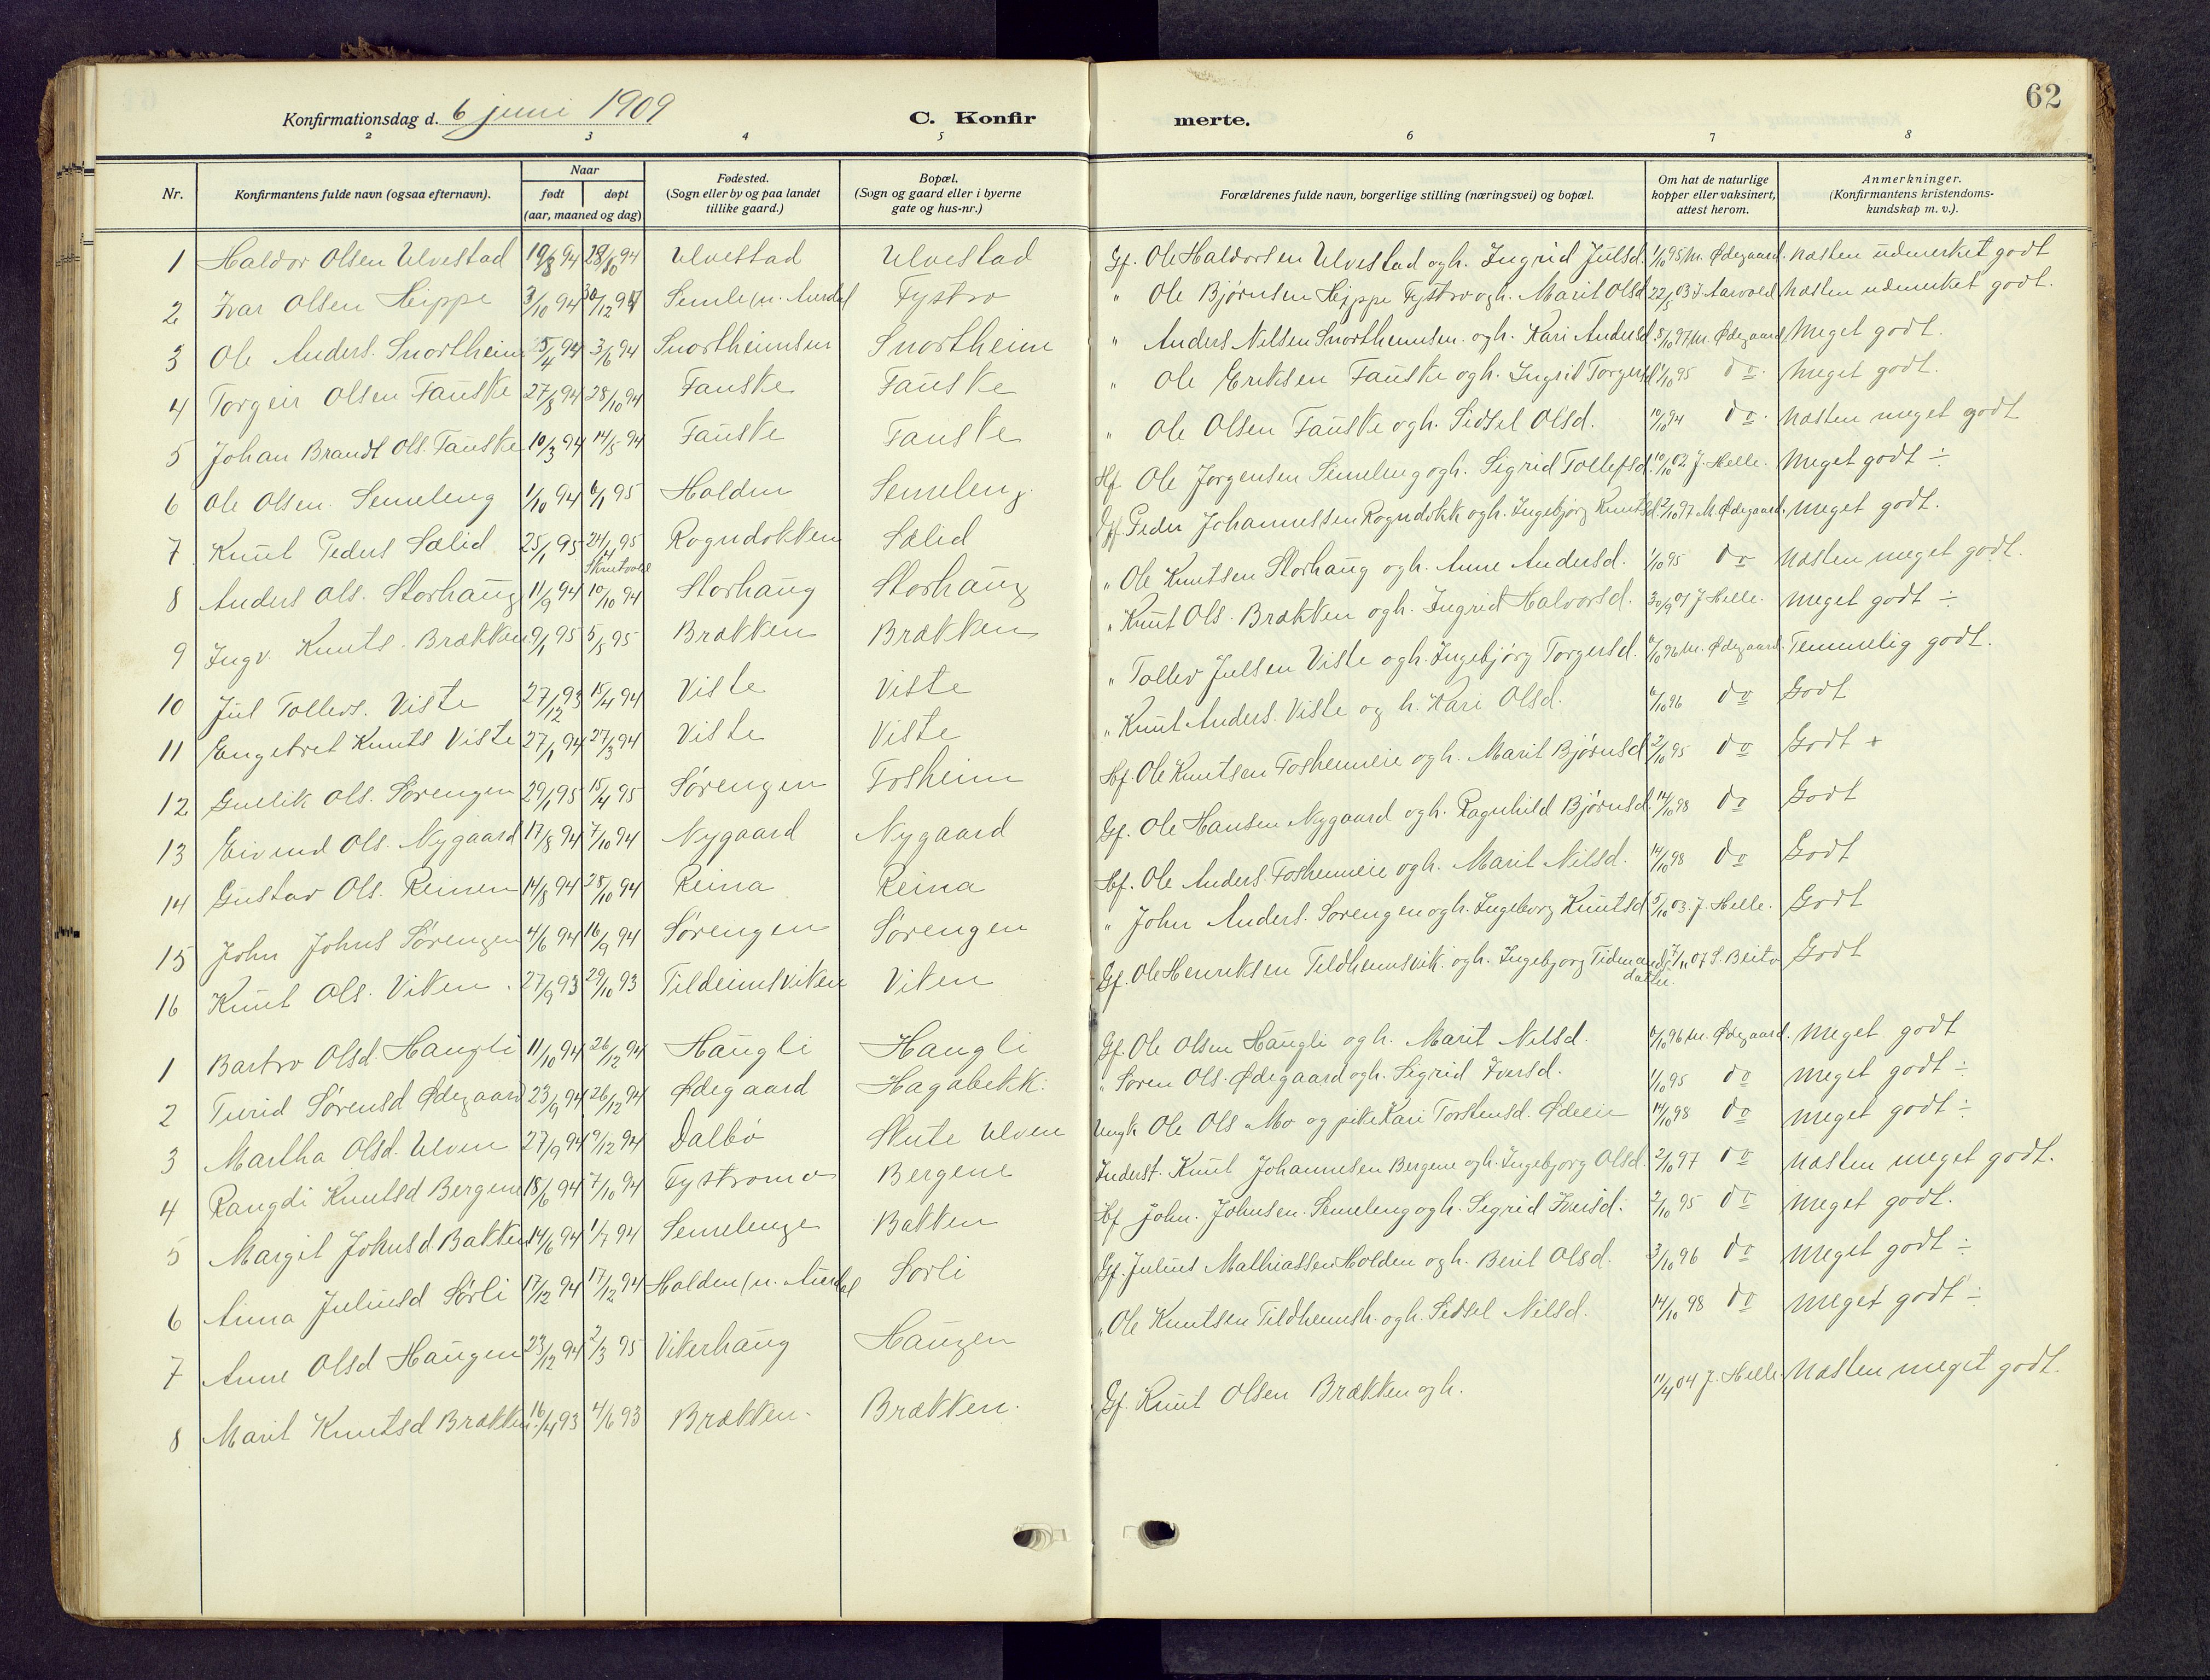 62
Konfirmationsdag d. 6 juni 1909 C. Konfirmerte.
2 3 4 5 6 7 8
Nr. Konfirmantens fulde navn (ogsaa efternavn). Naar født døpt (aar, maaned og dag) Fødested. (Sogn eller by og paa landet tillike gaard.) Bopæl. (Sogn og gaard eller i byerne gate og hus-nr.) Forældrenes fulde navn, borgerlige stilling (næringsvei) og bopæl. Om hat de naturlige kopper eller vaksinert, attest herom. Anmerkninger. (Konfirmantens kristendoms-kundskap m. v.).
1 Haldor Olsen Ulvestad 19/8 94 28/10 94 Ulvestad Ulvestad Gf. Ole Haldorsen Ulvestad og h. Ingrid Julsd. 1/10 95 M. Ødegaard. næsten udmerket godt
2 Ivar Olsen Hippe 3/10 94 30/12 94 Semle (n. Aurdal Fystro " Ole Bjørnsen Hippe Fystro og h. Marit Olsd 22/5 03 J Aarvold Næsten udmerket godt.
3 Ole Anders. Snortheim 5/4 94 3/6 94 Snortheimsen Snortheim " Anders Nilsen Snortheimsen. og h. Kari Andersd 5/10 97 M. Ødegaard Meget godt.
4 Torgeir Olsen Fauske 27/8 94 28/10 94 Fauske Fauske " Ole Eriksen Fauske og h. Ingrid Torgersd 1/10 95 do. Meget godt.
5 Johan Brandt Ols. Fauske 10/3 94 14/5 94 Fauske Fauske " Ole Olsen Fauske og h. Sidsel Olsd. 10/10 94 do. Næsten meget godt
6 Ole Olsen. Semeleng 1/10 94 6/1 95 Holden Semeleng. Hf. Ole Jørgensen Semeleng og h. Sigrid Tollefsd. 10/10 02 J. Helle. Meget godt ÷
7 Knut Peders Sælid 25/1 95 24/1 95 Skrutvold Rogndokken Sælid Gf Peder Johannessen Rogndokk og h. Ingebjørg Knutsd. 2/10 97 M Ødegaard. Meget godt.
8 Anders Ols. Storhaug 11/9 94 10/10 94 Storhaug Storhaug " Ole Knutsen Storhaug og h. Anne Andersd. 1/10 95 do Næsten meget godt.
9 Ingv. Knuts. Brækken 9/1 95 5/5 95 Brækken Brækken " Knut Ols. Brækken og h. Ingrid Halvorsd. 30/9 01 J Helle. Meget godt ÷
10 Jul Tollevs. Viste 27/12 93 15/4 94 Viste Viste " Tollev Julsen Viste og h. Ingebjørg Torgersd. 6/10 96 M. Ødegaard. Temmelig godt.
11 Engebret Knuts Viste 27/1 94 27/3 94 Viste Viste " Knut Anders. Viste og h. Kari Olsd. 6/10 96 do Godt
12 Gullik Ols. Sørengen 29/1 95 15/4 95 Sørengen Fosheim Hf. Ole Knutsen Foshemeie og h. Marit Bjørnsd 2/10 95 do Godt +
13 Eivind Ols. Nygaard 17/8 94 7/10 94 Nygaard Nygaard Gf. Ole Hansen Nygaard og h. Ragnhild Bjørnsd. 14/10 98 do Godt
14 Gustav Ols. Reinen 14/8 94 28/10 94 Reina Reina Hf. Ole Anders. Foshemeie og h. Marit Nilsd. 14/10 98 do Godt
15 John Johns Sørengen 4/6 94 16/9 94 Sørengen Sørengen " John Anders. Sørengen og h. Ingeborg Knutsd 5/10 03. J. Helle. Godt
16 Knut Ols. Viken. 27/9 93 29/10 93 Tildeimsviken Viken Gf. Ole Henriksen Tildhemsvik. og h. Ingebjørg Tidemandsdatter. 7/11 07 S. Beito Godt
1 Bastro Olsd Haugli 11/10 94 26/12 94 Haugli Haugli Gf. Ole Olsen Haugli og h. Marit Nilsd. 6/10 96 M. Ødegaard. Meget godt
2 Turid Sørensd Ødegaard 23/9 94 26/12 94 Ødegaard Hagabekk. " Søren Ols. Ødegaard og h. Sigrid Iversd. 1/10 95 do Meget godt ÷
3 Martha Olsd. Ulven 27/9 94 9/12 94 Dalbø Slute Ulven Ungk Ole Ols Mo og pike Kari Torstensd. Ødeeie 14/10 98 do Meget godt ÷
4 Rangdi Knutsd Bergene 18/6 94 7/10 94 Fystromo Bergene Inderst. Knut Johannesen Bergene og h. Ingebjørg Olsd. 2/10 97 do Næsten meget godt.
5 Margit Johnsd Bakken 14/6 94 1/7 94 Semelenge Bakken Hf John. Johnsen Semeleng og h. Sigrid Iversd. 2/10 95 do Meget godt.
6 Anna Juliusd Sørli 17/12 94 17/12 94 Holden (n. Aurdal Sørli Gf. Julius Mathiassen Holden og h. Berit Olsd. 3/10 96 do Meget godt ÷
7 Anne Olsd Haugen 23/12 94 2/3 95 Vikerhaug Haugen " Ole Knutsen Tildhemsh. og h. Sidsel Nilsd. 14/10 98 do Meget godt ÷
8 Marit Knutsd Brækken. 16/4 93 4/6 93 Brækken. Brækken. Gf. Knut Olsen Brækken og h. 11/4 04 J. Helle Næsten meget godt.